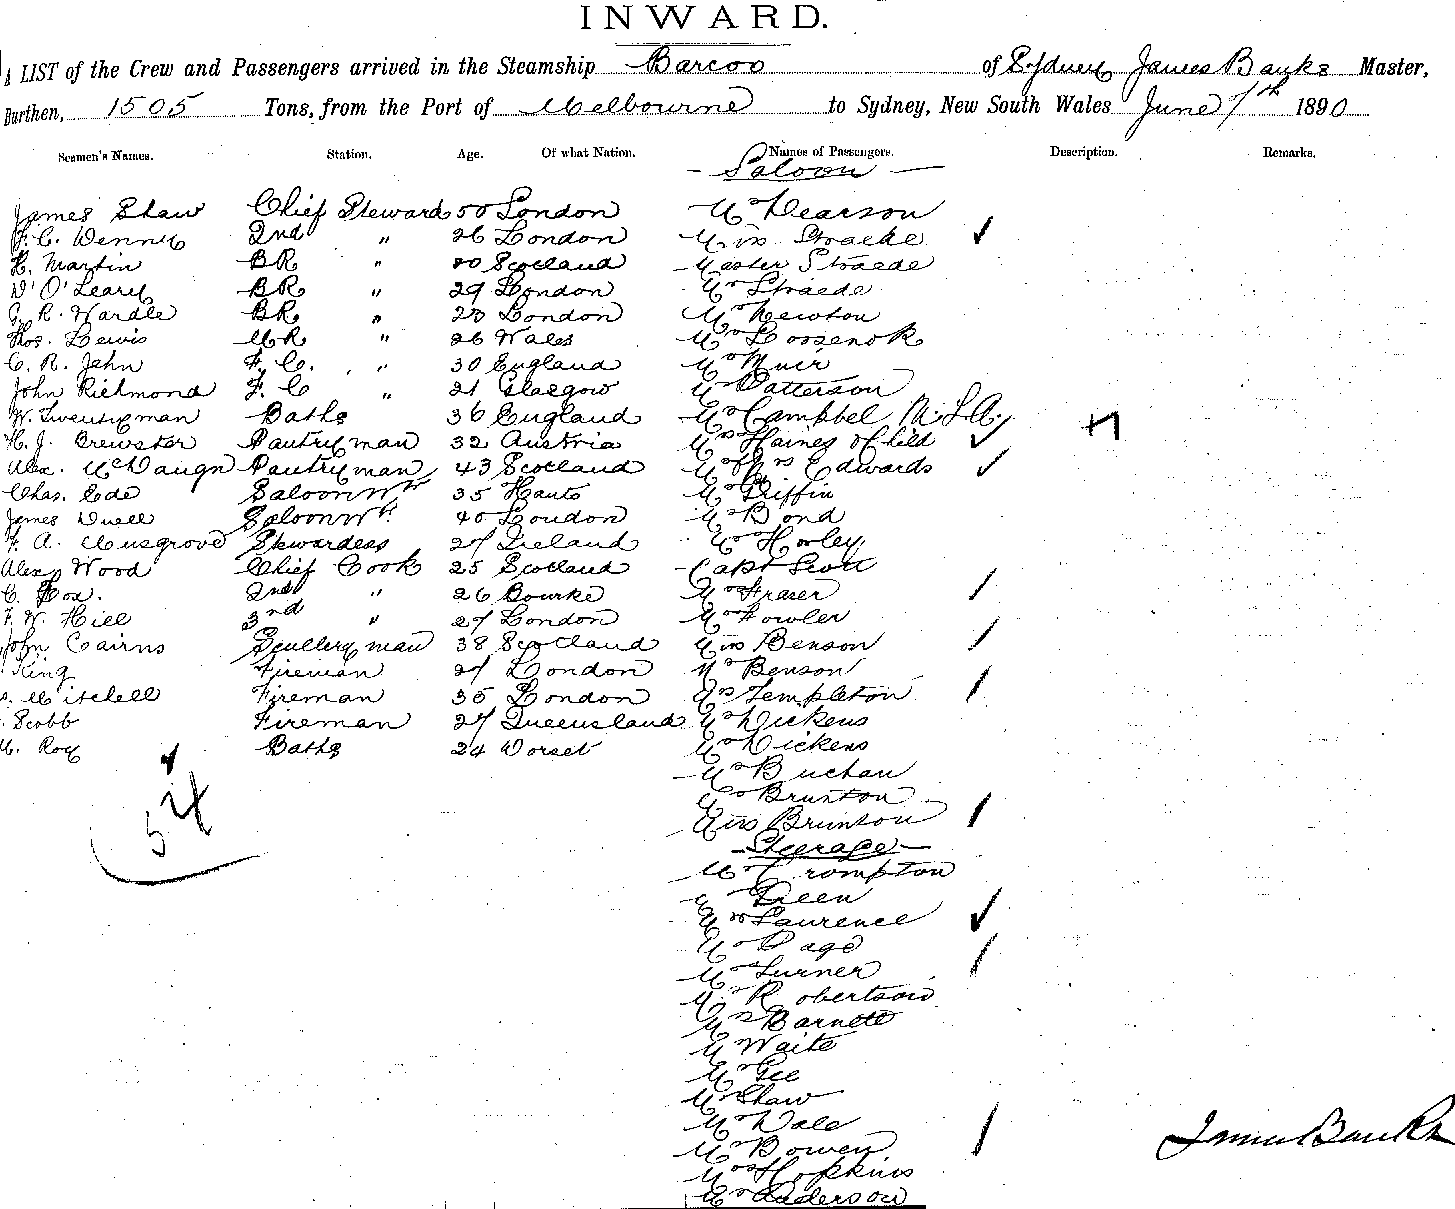 INWARD.
A LIST of the Crew and Passengers arrived in the Steamship Barcoo of Sydney James Banks Master,
Burthen, 1505 Tons, from the Port of Melbourne to Sydney, New South Wales June 7th 1890
Seamen's Names. Station. Age. Of what Nation. Names of Passengers. Description. Remarks.
Saloon
James Shaw Chief Steward 50 London Mr Pearson
F. C. Denny 2nd " 26 London Miss Straede
H. Martin BR " 20 Scotland Master Straede
D' O'Leary BR " 29 London Mr Straede
G. R. Wardle BR " 23 London Mr Newton
Thos. Lewis MR " 26 Wales Mr
C. R. Jehn F. C. " 30 England Mr Muir
John Richmond F. C " 21 Glasgow Mr Patterson
W. Twentyman Baths 36 England Mr Campbel M.L.A.
H. J. Brewster Pantryman 32 Austria Mrs Haines & Child
Alex. Pantryman 43 Scotland Mr & Mrs Edwards
Chas. Ede Saloon Wtr 35 Hants Mr Griffin
James Duell Saloon Wtr. 40 London Mr Bond
F. A. Musgrove Stewardess 27 Ireland Mr Horley
Alex Wood Chief Cook 25 Scotland Capt Scott
C. Fox. 2nd " 26 Bourke Mrs Fraser
F. W. Hill 3rd " 27 London Mr Fowler
John Cairns Scullery man 38 Scotland Miss Benson
King Fireman 27 London Mr Benson
Mitchell Fireman 35 London Mrs Templeton
Scobb Fireman 27 Queensland Mr Dickens
M. Roy Baths 24 Dorset Mr Dickens
Mr Buchan
54 Mr Brunton
Miss Brunton
Steerage
Mr Crompton
Green
Mrs Laurence
Mr Page
Mr Turner
Mr Robertson
Mr Barnett
Mr Waite
Mr Gee
Mr Shaw
Mr Dale
Mr Bowen
James Banks
Mrs Hopkins
Mr Anderson